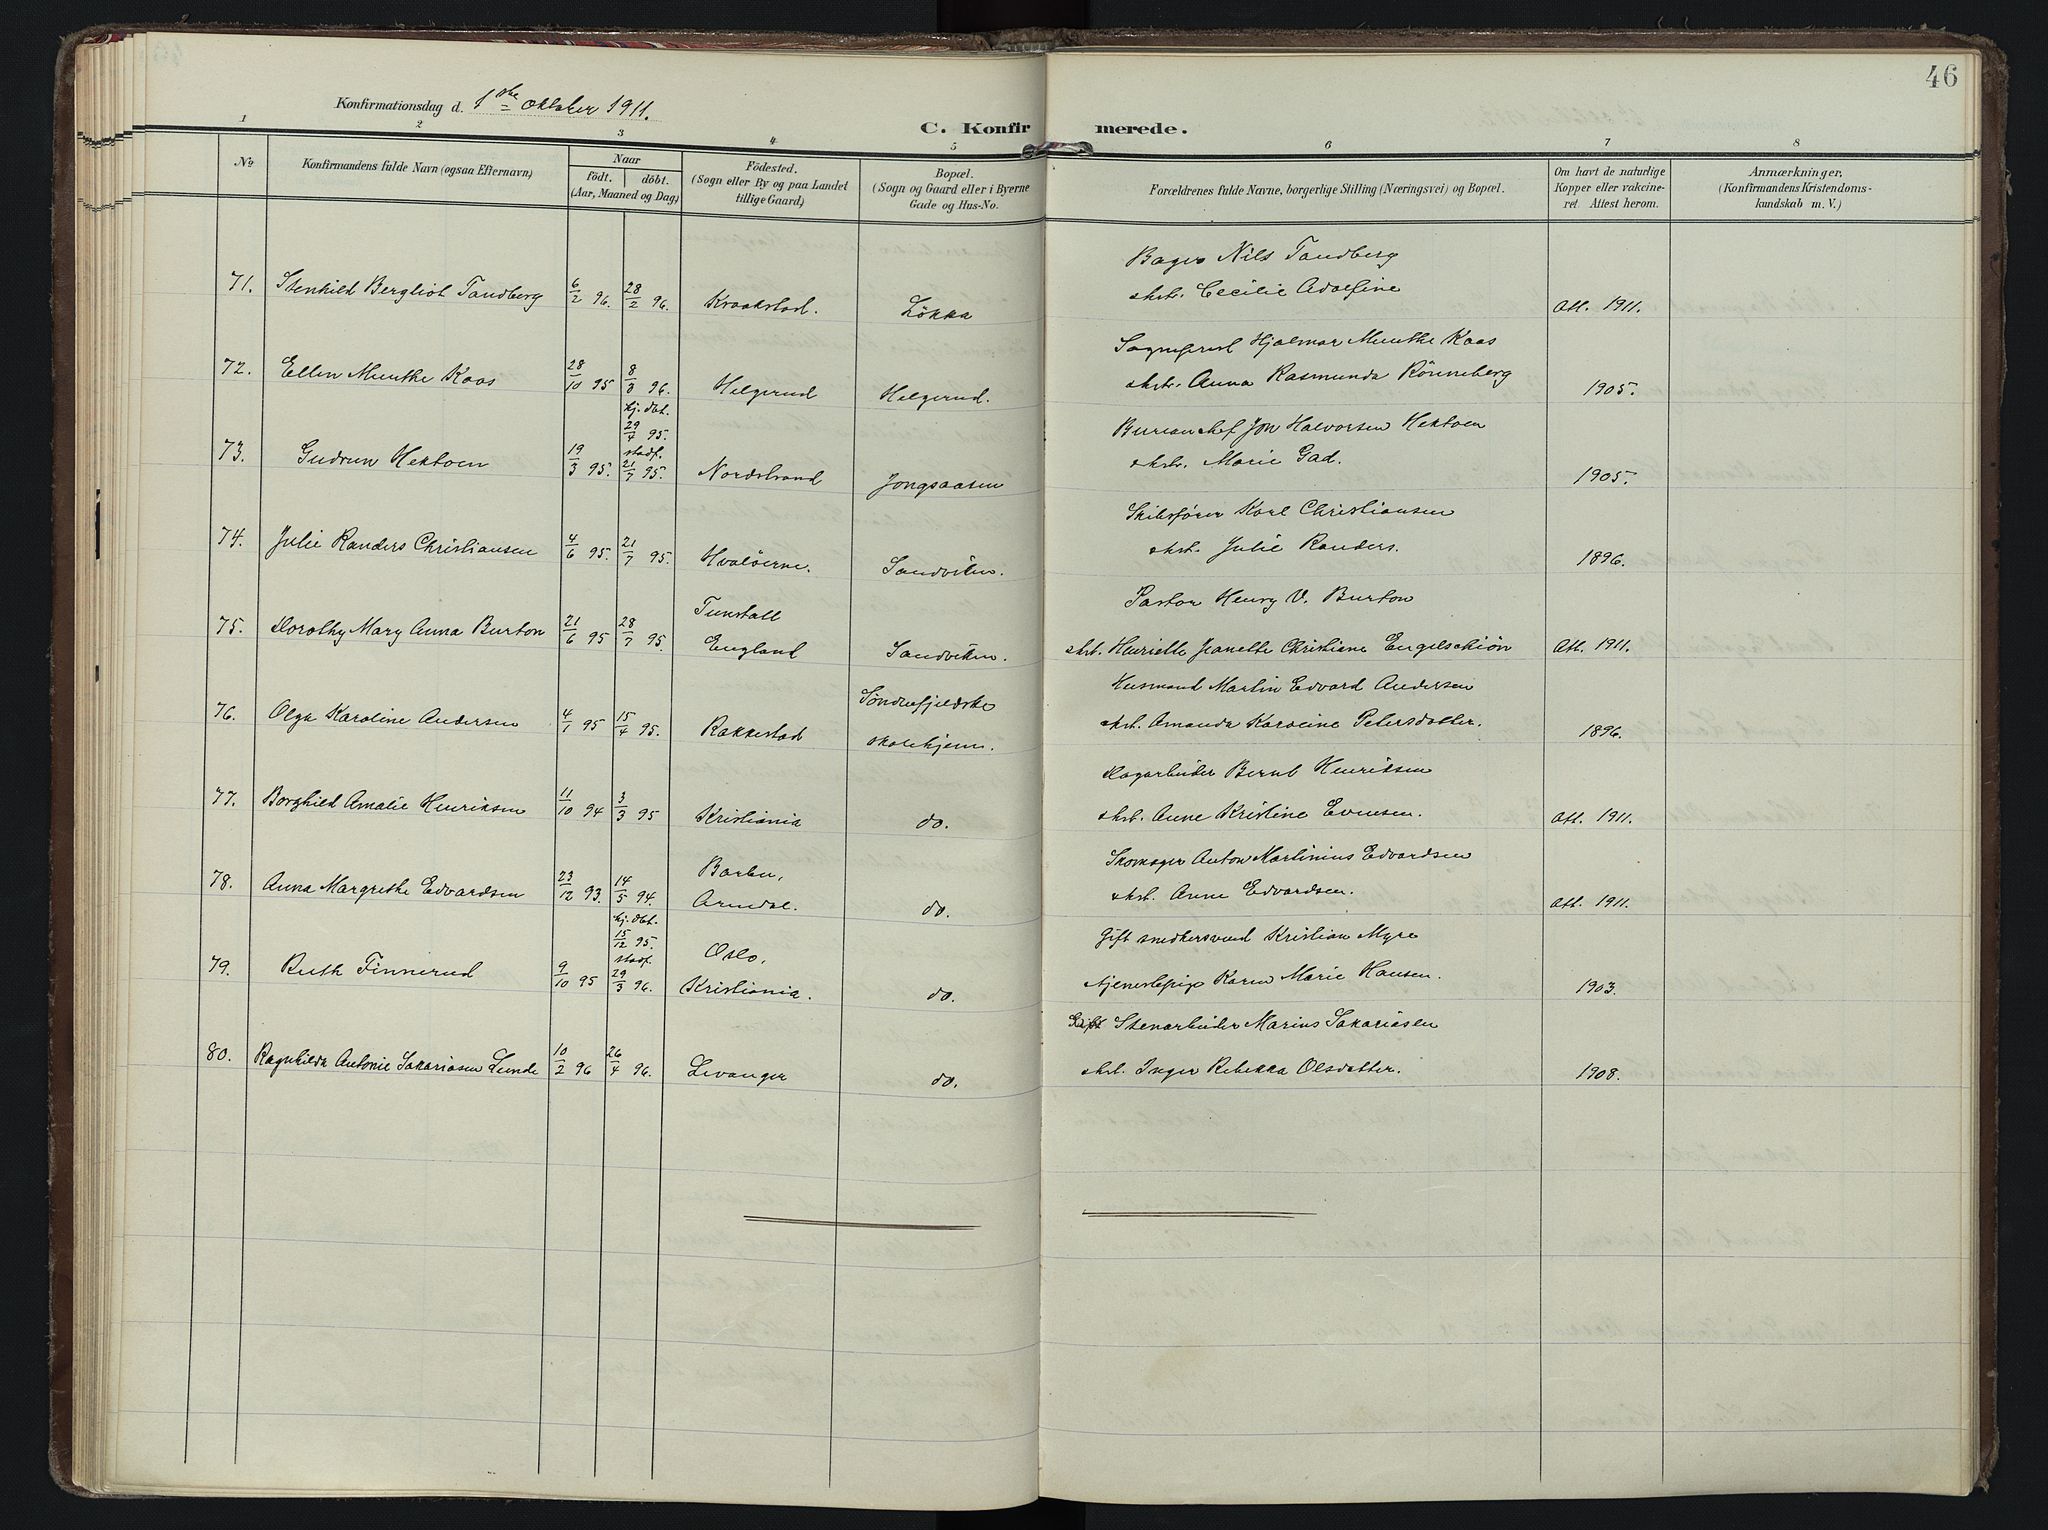 46
Konfirmationsdag d. 1ste oktober 1911.
C. Konfirmerede.
1 2 3 4 5 6 7 8
No
Konfirmandens fulde Navn (ogsaa Efternavn)
Naar
födt. döbt.
(Aar, Maaned og Dag)
Födested.
(Sogn eller By og paa Landet
tillige Gaard)
Bopæl.
(Sogn og Gaard eller i Byerne
Gade og Hus-No.
Forældrenes fulde Navne, borgerlige Stilling (Næringsvei) og Bopæl.
Om havt de naturlige
Kopper eller vakcine-
ret. Attest herom.
Anmærkninger,
(Konfirmandens Kristendoms-
kundskab m. V.)
Bager Nils Tandberg
71. Stenhild Bergliot Tandberg 6/2 96. 28/2 96. Kraakstad. Løkka hstr. Cecilie Adolfine Att. 1911.
Hjalmar Munthe Kaas
72. Ellen Munthe Kaas 28/10 95 8/3 96. Helgerud Helgerud. hstr. Anna Rasmunda Rønneberg 1905.
hj. dbt.
29/4 95.
Bureauchef Jon Halvorsen Hektoen
stadf.
73. Gudrun Hektoen 19/3 95. 21/7 95. Nordstrand Jongsaasen hstr. Marie Gad. 1905.
Skibsfører Karl Christiansen
74. Julie Randers Christiansen 4/6 95. 21/7 95. Hvaløerne. Sandviken. hstr. Julie Randers. 1896.
Tunstall Pastor Henry V. Burton
75. Dorothy Mary Anna Burton 21/6 95 28/7 95. England Sandviken. hstr. Henriette Jeanette Christiane Engelschiøn Att. 1911.
Søndenfjeldske Husmand Martin Edvard Andersen
76. Olga Karoline Andersen 4/1 95 15/4 95. Rakkestad skolehjem. hstr. Amanda Karoline Petersdatter. 1896.
Dagarbeider Bernt Henriksen
77. Borghild Amalie Henriksen 11/10 94 3/3 95 Kristiania do. hstr. Anne Kristine Evensen. Att. 1911.
Barbu, Skomager Anton Martinius Edvardsen
78. Anna Margrethe Edvardsen 23/12 93. 14/5 94. Arendal. do. hstr. Anne Edvardsen. Att. 1911.
hj. dbt.
15/12 95. Oslo, Gift snedkersvend Kristian Myre
stadf.
79. Ruth Finnerud 9/10 95 29/3 96. Kristiania. do. tjenestepige Karen Marie Hansen. 1903.
Gift Stenarbeider Marius Sakariasen
80. Ragnhilda Antonie Sakariasen Lunde 10/2 96 26/4 96. Levanger do. hstr. Inger Rebekka Olsdatter. 1908.